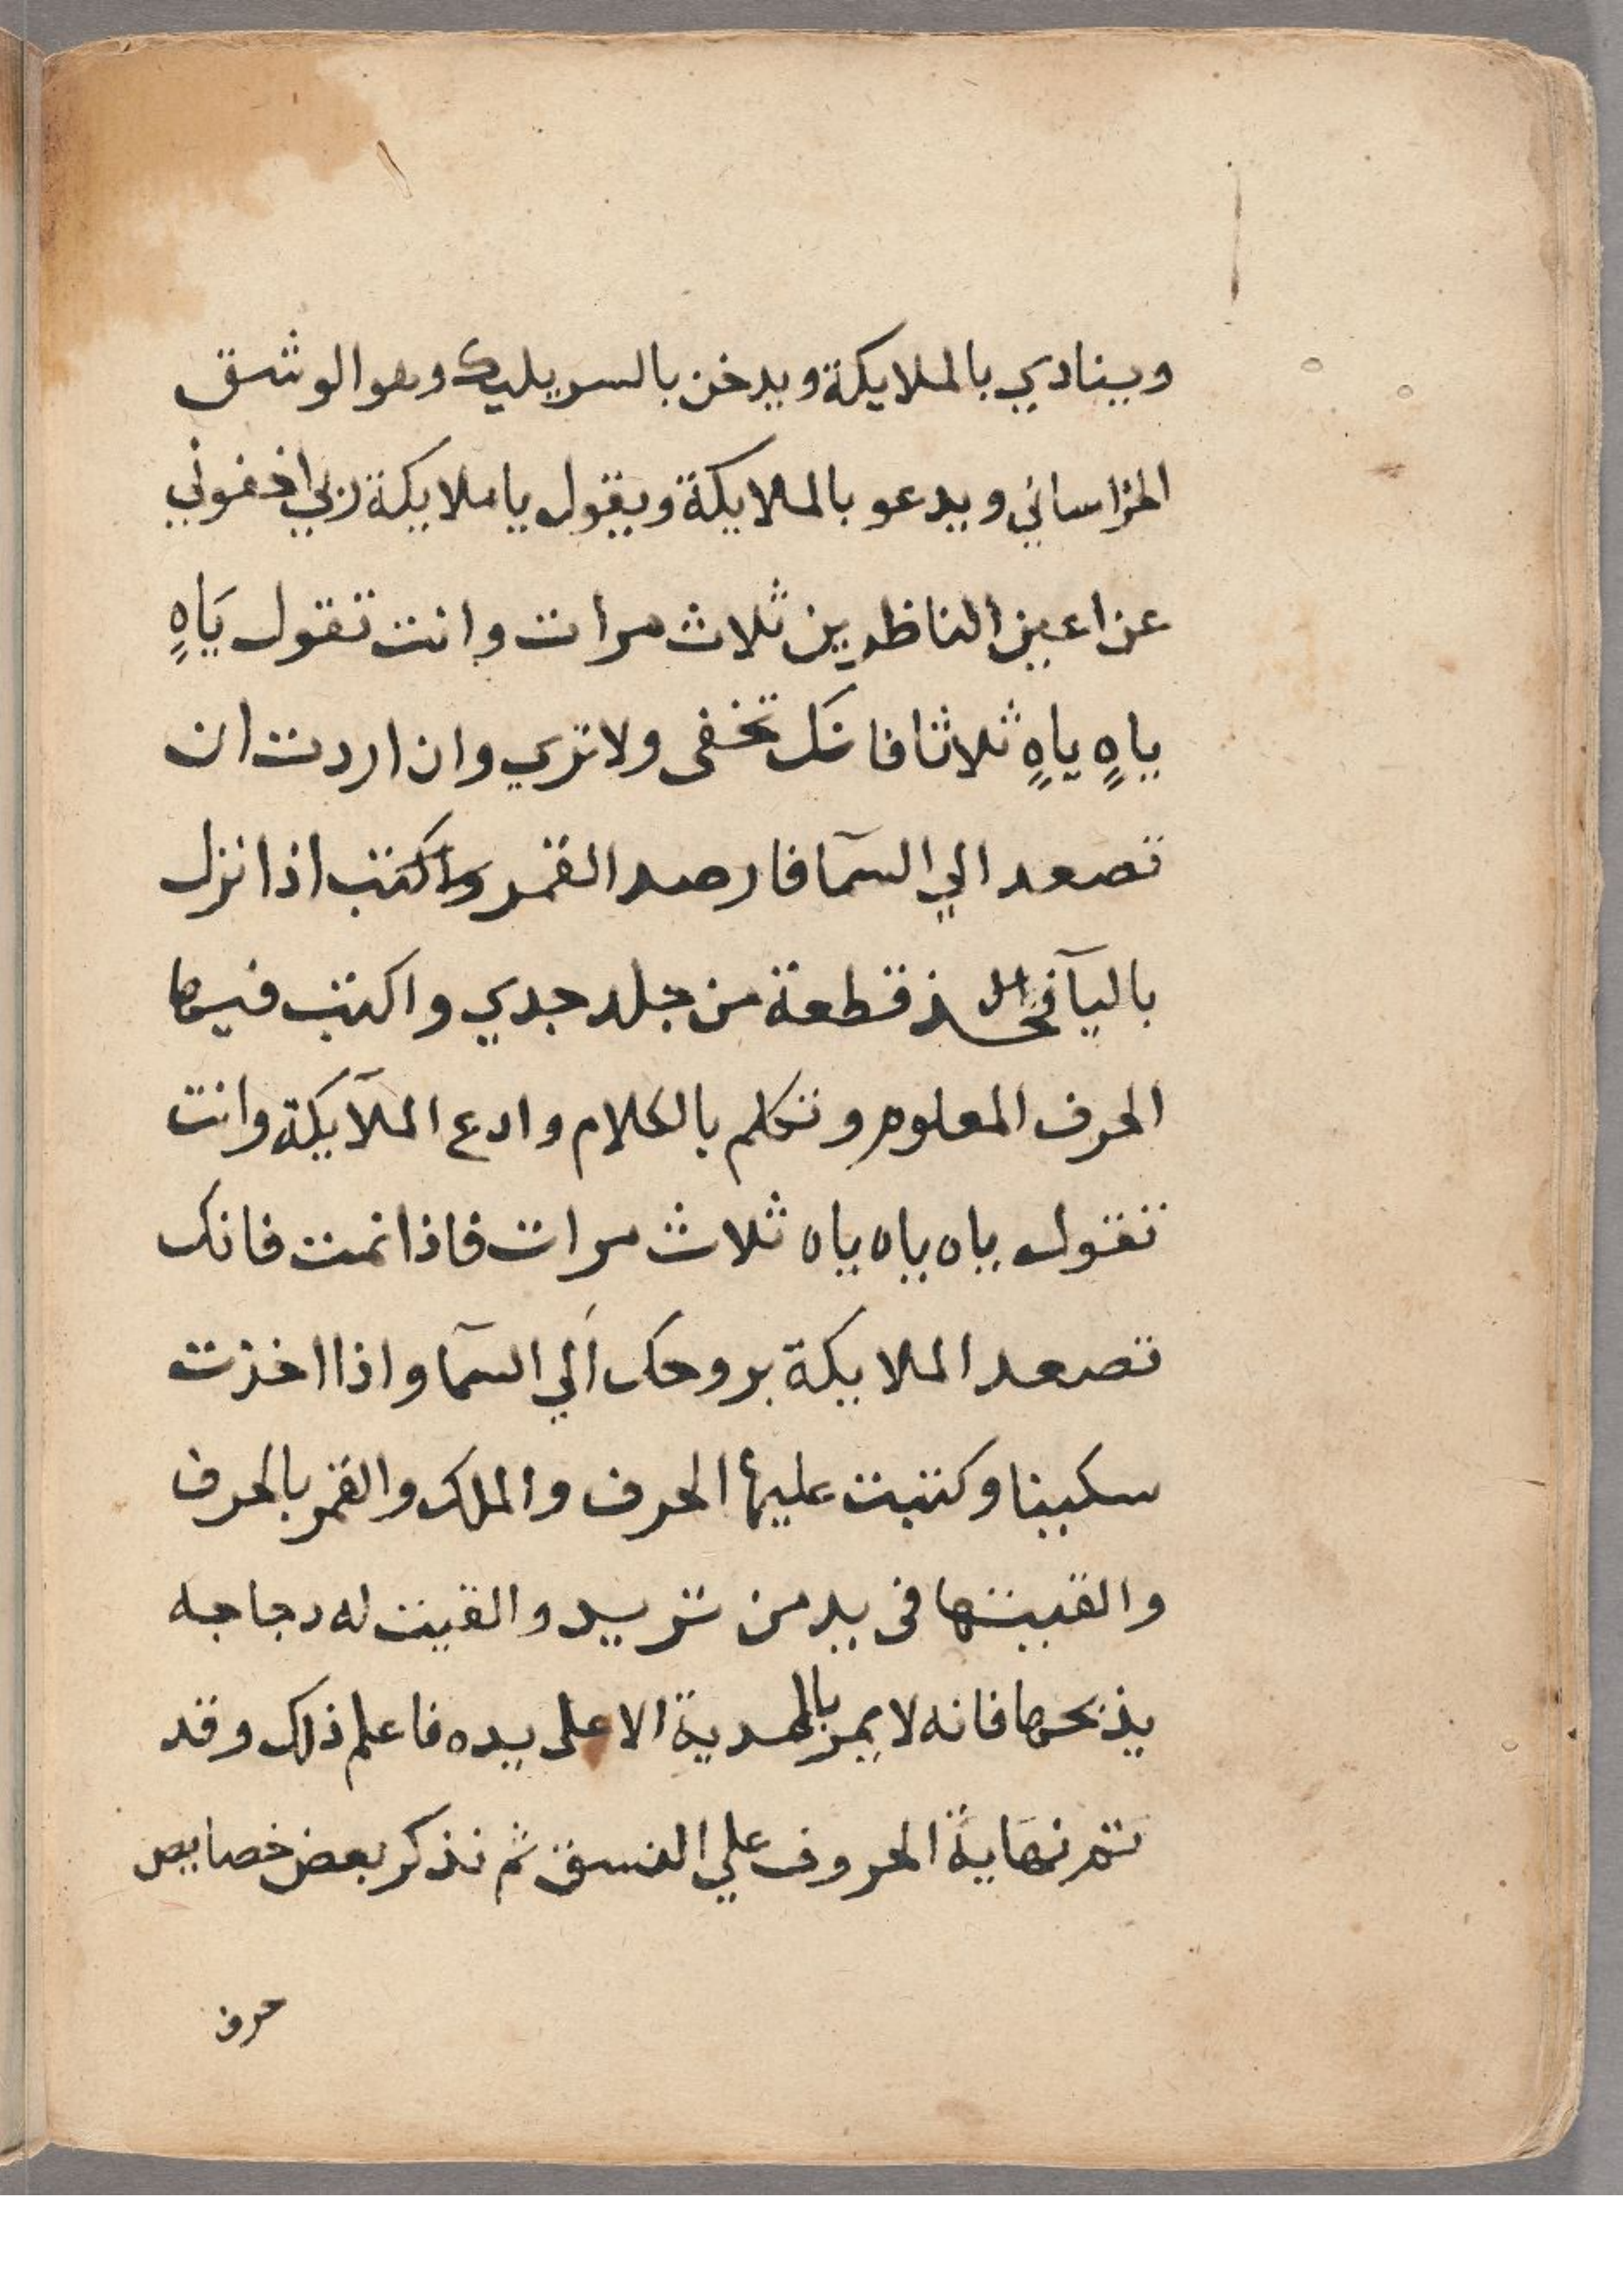 وينادي بالملايكة ويدخن بالسريليك وهو الوشق
الخراساني ويدعو بالملايكة ويقول يا ملايكة ربي اخفوني
عن اعين الناظرين ثلاث مرات وانت تقول يَاهٍ
ياهٍ ياهٍ ثلاثا فانك تخفى ولا تري وان اردت ان
تصعد الي السمآ فارصد القمر واكتب اذا نزل
باليآ فخذ قطعة من جلد جدي واكتب فيها
الحرف المعلوم وتكلم بالكلام وادع الملآيكة وانت
تقول ياه ياه ياه ثلاث مرات فاذا نمت فانك
تصعد الملايكة بروحك الي السمآ واذا اخذت
سكينا وكتبت عليها الحرف والملك والقمر بالحرف
والقيتها في يد من تريد والقيت له دجاجه
يذبحها فانه لا يمر بالمدية الا على يده فاعلم ذلك وقد
تم نهاية الحروف علي النسق ثم نذكر بعض خصايص
حرف